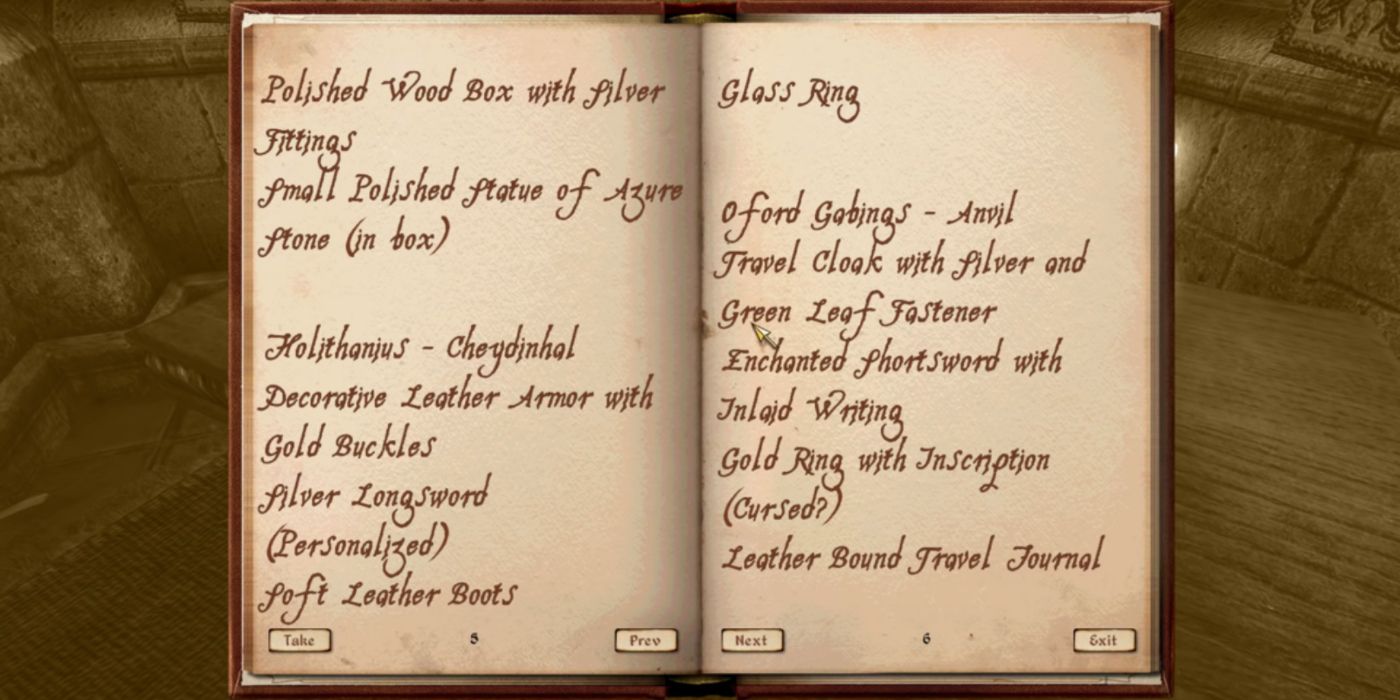 Polished Wood Box with Silver
Fittings
Small Polished Statue of Azure
Stone (in box)
Holithanius - Cheydinhal
Decorative Leather Armor with
Gold Buckles
Silver Longsword
(Personalized)
Soft Leather Boots
Take
5
Prev
Glass Ring
Oford Gabings - Anvil
Travel Cloak with Silver and
Green Leaf Fastener
Enchanted Shortsword with
Inlaid Writing
Gold Ring with Inscription
(Cursed?)
Leather Bound Travel Journal
Next
6
Exit